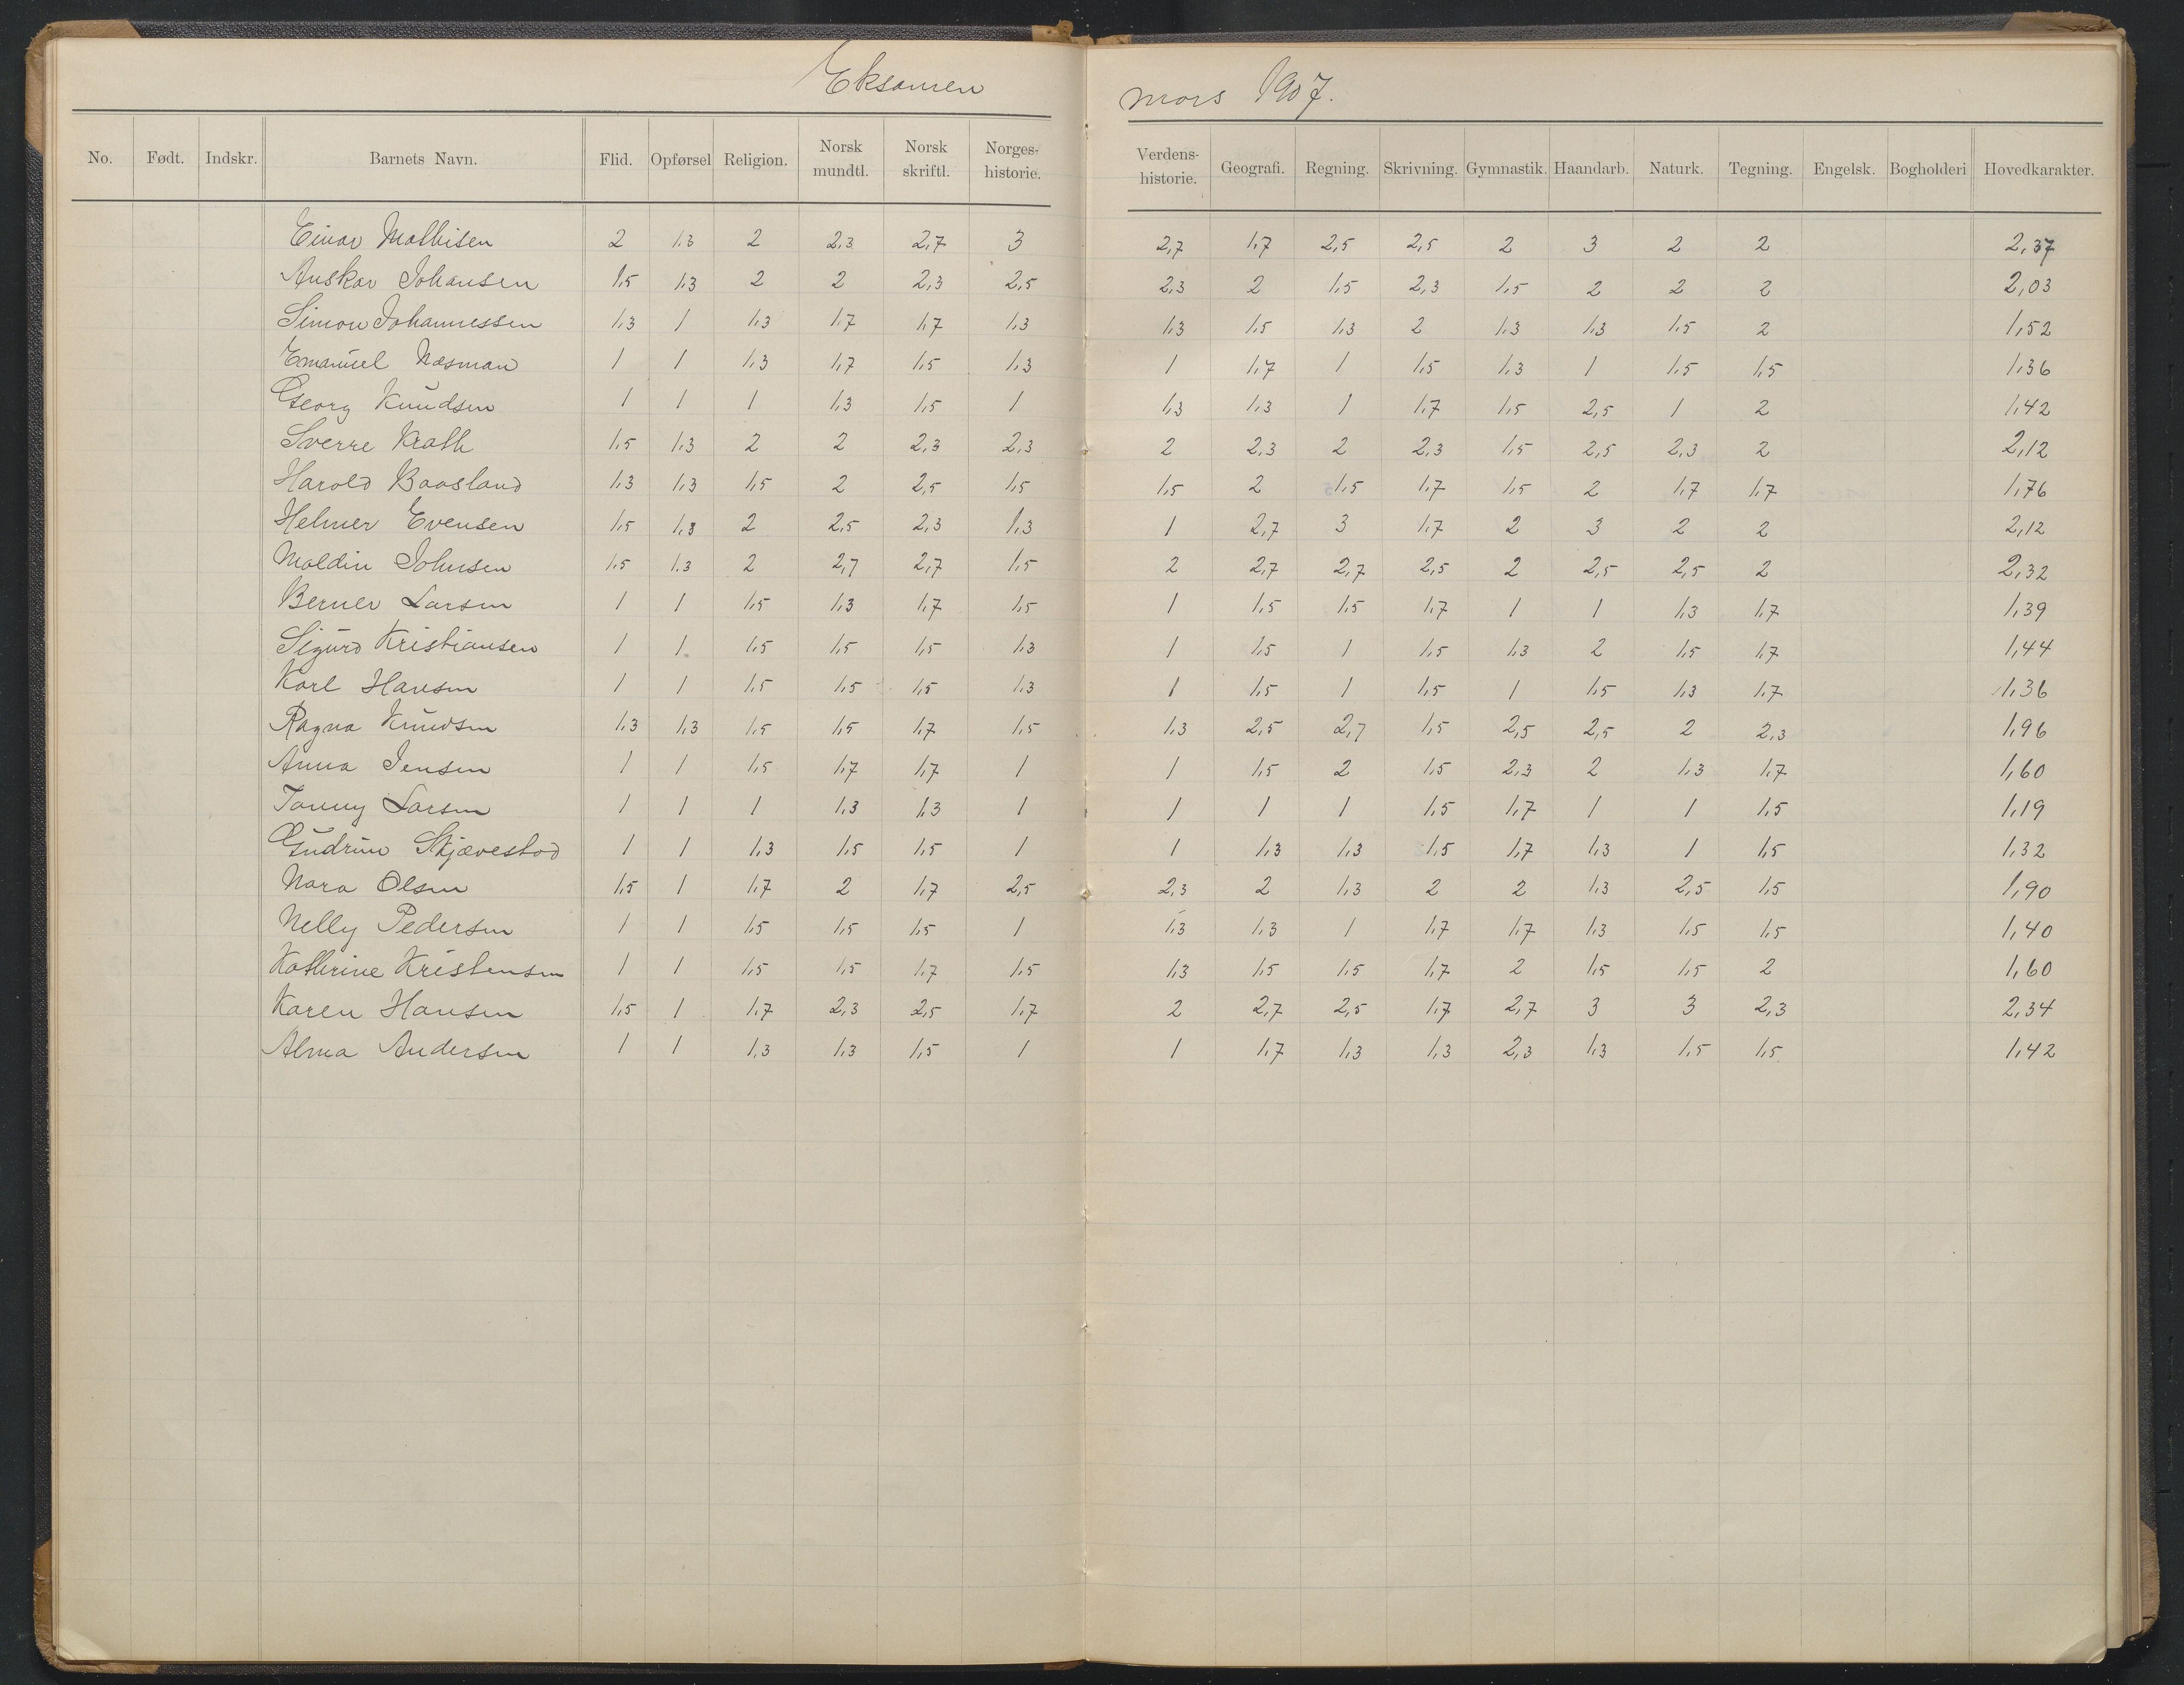 Eksamen mars 1907.
No. Født. Indskr. Barnets Navn. Flid. Opførsel Religion. Norsk mundtl. Norsk skriftl. Norges-historie. Verdens-historie. Geografi. Regning. Skrivning. Gymnastik. Haandarb. Naturk. Tegning. Engelsk. Bogholderi Hovedkarakter.
Einar Mathisen 2 1,3 2 2,3 2,7 3 2,7 1,7 2,5 2,5 2 3 2 2 2,37
Anskar Johansen 1,5 1,3 2 2 2,3 2,5 2,3 2 1,5 2,3 1,5 2 2 2 2,03
Simon Johannessen 1,3 1 1,3 1,7 1,7 1,3 1,3 1,5 1,3 2 1,3 1,3 1,5 2 1,52
Emanuel Næsman 1 1 1,3 1,7 1,5 1,3 1 1,7 1 1,5 1,3 1 1,5 1,5 1,36
Georg Knudsen 1 1 1 1,3 1,5 1 1,3 1,3 1 1,7 1,5 2,5 1 2 1,42
Sverre Krath 1,5 1,3 2 2 2,3 2,3 2 2,3 2 2,3 1,5 2,5 2,3 2 2,12
Harald Baasland 1,3 1,3 1,5 2 2,5 1,5 1,5 2 1,5 1,7 1,5 2 1,7 1,7 1,76
Helmer Evensen 1,5 1,3 2 2,5 2,3 1,3 1 2,7 3 1,7 2 3 2 2 2,12
Maldin Johnsen 1,5 1,3 2 2,7 2,7 1,5 2 2,7 2,7 2,5 2 2,5 2,5 2 2,32
Berner Larsen 1 1 1,5 1,3 1,7 1,5 1 1,5 1,5 1,7 1 1 1,3 1,7 1,39
Sigurd Kristiansen 1 1 1,5 1,5 1,5 1,3 1 1,5 1 1,5 1,3 2 1,5 1,7 1,44
Karl Hansen 1 1 1,5 1,5 1,5 1,3 1 1,5 1 1,5 1 1,5 1,3 1,7 1,36
Ragna Knudsen 1,3 1,3 1,5 1,5 1,7 1,5 1,3 2,5 2,7 1,5 2,5 2,5 2 2,3 1,96
Anna Jensen 1 1 1,5 1,7 1,7 1 1 1,5 2 1,5 2,3 2 1,3 1,7 1,60
Tanny Larsen 1 1 1 1,3 1,3 1 1 1 1 1,5 1,7 1 1 1,5 1,19
Gudrun Skjævestad 1 1 1,3 1,5 1,5 1 1 1,3 1,3 1,5 1,7 1,3 1 1,5 1,32
Nara Olsen 1,5 1 1,7 2 1,7 2,5 2,3 2 1,3 2 2 1,3 2,5 1,5 1,90
Nelly Pedersen 1 1 1,5 1,5 1,5 1 1,3 1,3 1 1,7 1,7 1,3 1,5 1,5 1,40
Kathrine Kristensen 1 1 1,5 1,5 1,7 1,5 1,3 1,5 1,5 1,7 2 1,5 1,5 2 1,60
Karen Hansen 1,5 1 1,7 2,3 2,5 1,7 2 2,7 2,5 1,7 2,7 3 3 2,3 2,34
Alma Andersen 1 1 1,3 1,3 1,5 1 1 1,7 1,3 1,3 2,3 1,3 1,5 1,5 1,42